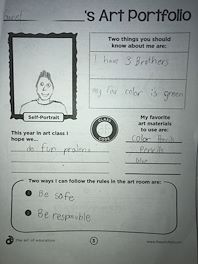 's Art Portfolio
Two things you should
know about me are:
I have 3 Brothers
my fav color is green
Self-Portrait
This year in art class I
hope we...
do fun
My favorite
art materials
to use are:
Color
Pencils
glue
Two ways I can follow the rules in the art room are:
Be safe
Be responsible
the art of education